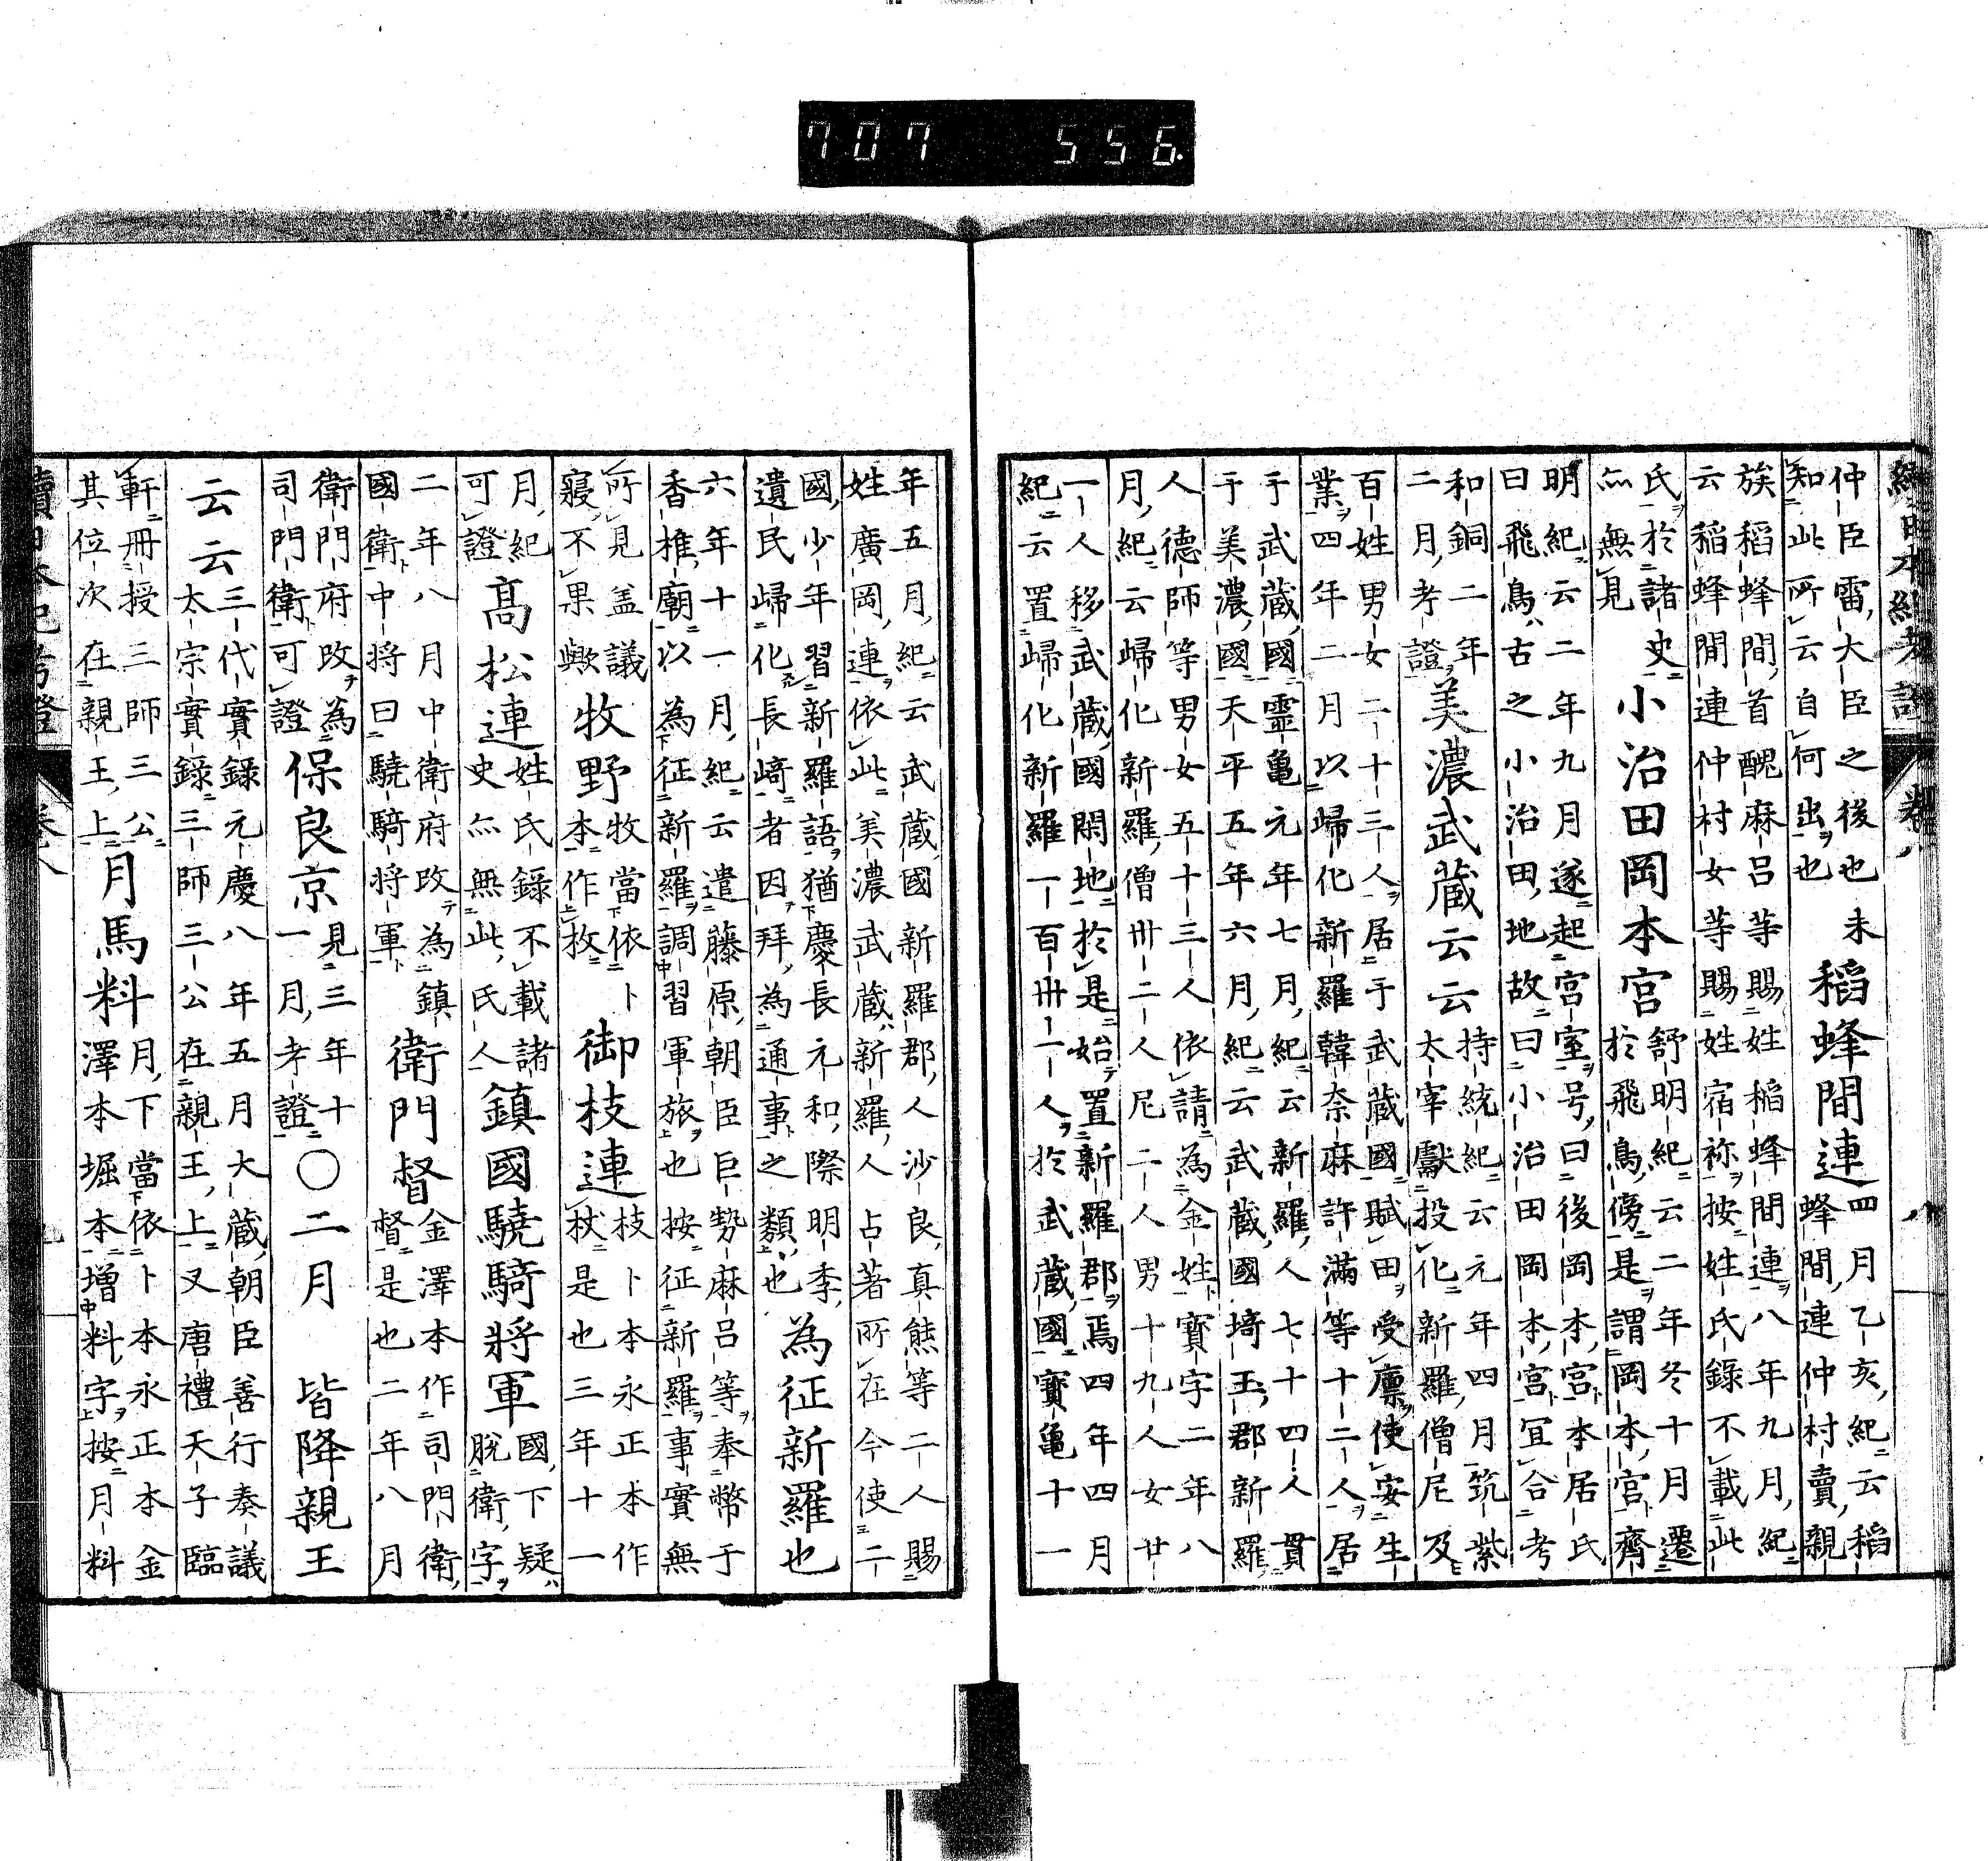 707 556
續日本紀考證 卷八
仲臣雷大臣之後也未
知此所云自何出也
稻蜂間連
四月乙亥紀云稻
蜂間連仲村賣親
族稻蜂間首醜麻呂等賜姓稻蜂間連八年九月紀
云稻蜂間連仲村女等賜姓宿祢按姓氏錄不載此
氏於諸史
亦無見
小治田岡本宮
舒明紀云二年冬十月遷
於飛鳥傍是謂岡本宮齊
明紀云二年九月遂起宮室号曰後岡本宮本居氏
曰飛鳥古之小治田地故曰小治田岡本宮宜合考
和銅二年
二月考證
美濃武藏云云
持統紀云元年四月筑紫
太宰獻投化新羅僧尼及
百姓男女二十三人居于武藏國賦田受廩使安生
業四年二月以歸化新羅韓奈麻許滿等十二人居
于武藏國靈亀元年七月紀云新羅人七十四人貫
于美濃國天平五年六月紀云武藏國埼玉郡新羅
人德師等男女五十三人依請為金姓寶字二年八
月紀云歸化新羅僧卅二人尼二人男十九人女廿
一人移武藏國閑地於是始置新羅郡焉四年四月
紀云置歸化新羅一百卅一人於武藏國寶亀十一
年五月紀云武藏國新羅郡人沙良真熊等二人賜
姓廣岡連依此美濃武藏新羅人占著所在今使二
國少年習新羅語猶慶長元和際明季
遺民歸化長﨑者因拜為通事之類也
為征新羅也
六年十一月紀云遣藤原朝臣巨勢麻呂等奉幣于
香椎廟以為征新羅調習軍旅也按征新羅事實無
所見盖議
寢不果歟
牧野
牧當依卜
本作枚
御枝連
枝卜本永正本作
杖是也三年十一
月紀
可證
髙松連
姓氏錄不載諸
史亦無此氏人
鎮國驍騎將軍
國下疑
脫衛字
二年八月中衛府改為鎮
國衛中将曰驍騎将軍
衛門督
金澤本作司門衛
督是也二年八月
衛門府改為
司門衛可證
保良京
見三年十
一月考證
〇二月 皆降親王
云云
三代實錄元慶八年五月大藏朝臣善行奏議
太宗實錄三師三公在親王上又唐禮天子臨
軒冊授三師三公
其位次在親王上
月馬料
月下當依卜本永正本金
澤本堀本增料字按月料
續日本紀考證 卷八